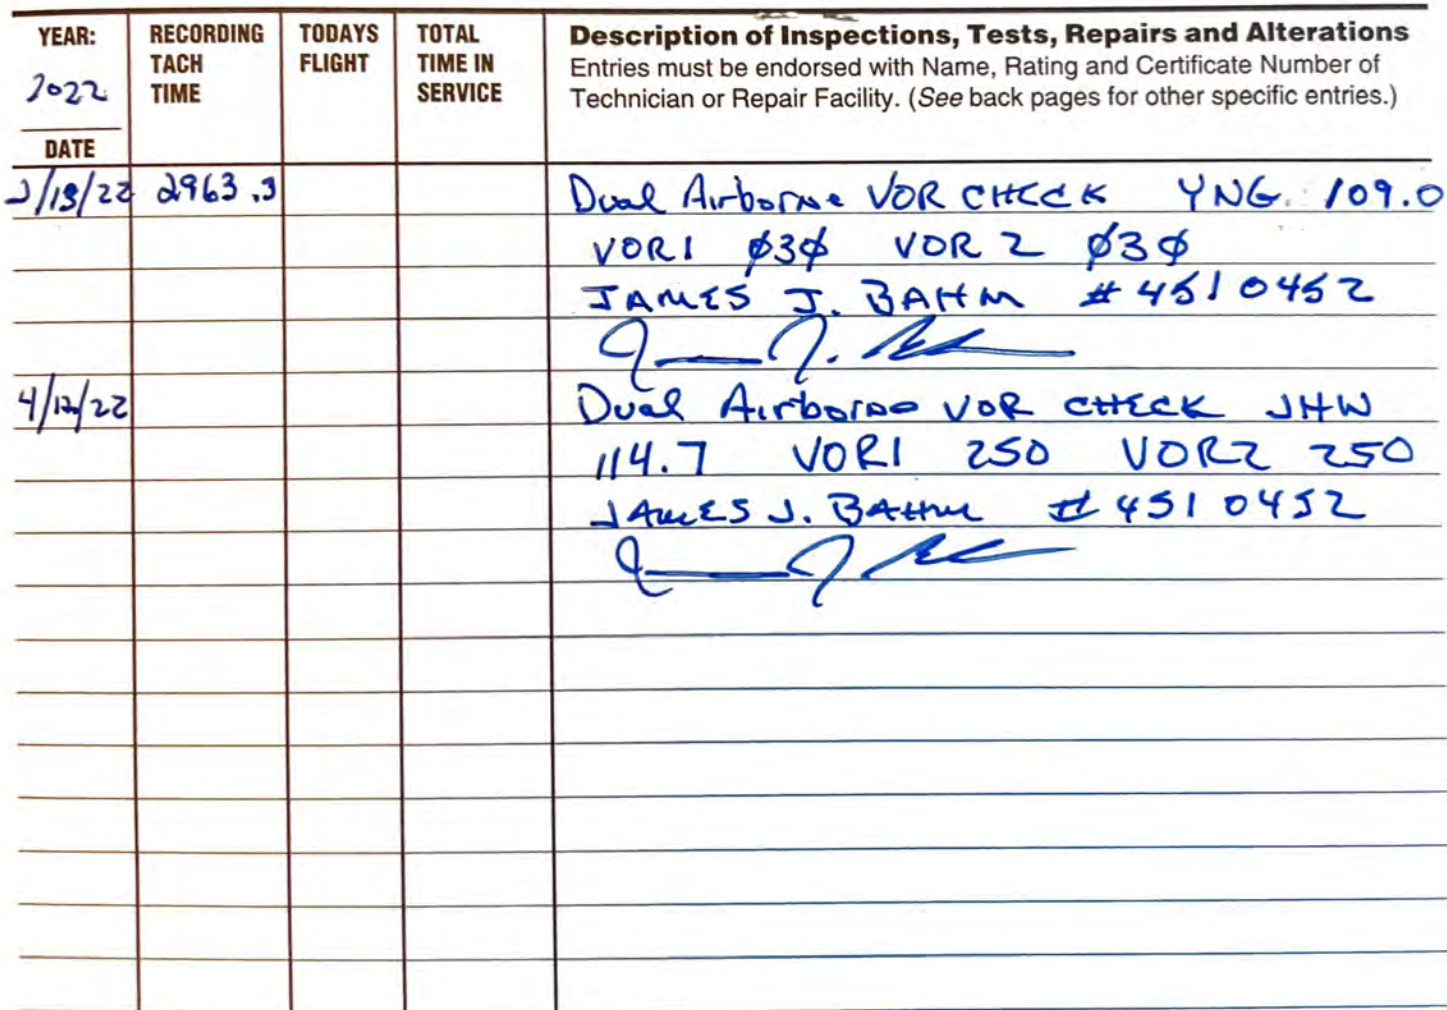 YEAR:
2022
DATE
RECORDING
TACH
TIME
TODAYS
FLIGHT
TOTAL
TIME IN
SERVICE
Description of Inspections, Tests, Repairs and Alterations
Entries must be endorsed with Name, Rating and Certificate Number of
Technician or Repair Facility. (See back pages for other specific entries.)
2963.3 Dual Airborne VOR CHECK YNG 109.0
VOR1 Ø3Ø VOR 2 Ø3Ø
JAMES J. BAHM #4510452
4/12/22 Dual Airborne VOR CHECK JHW
114.7 VOR1 250 VOR2 250
JAMES J. BAHM #4510452